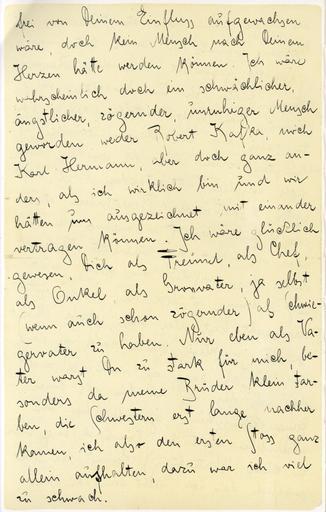 bei von Deinem Einfluss aufgewachsen
wäre, doch kein Mensch nach Deinem
Herzen hätte werden können. Ich wäre
wahrscheinlich doch ein schwächlicher,
ängstlicher, zögernder, unruhiger Mensch
geworden weder Robert Kafka, noch
Karl Hermann, aber doch ganz an-
ders, als ich wirklich bin und wir
hätten uns ausgezeichnet mit einander
vertragen können. Ich wäre glücklich
gewesen, Dich als Freund, als Chef,
als Onkel als Grossvater, ja selbst
(wenn auch schon zögernder) als Schwie-
gervater zu haben. Nur eben als Va-
ter warst Du zu stark für mich, be-
sonders da meine Brüder klein star-
ben, die Schwestern erst lange nachher
kamen, ich also den ersten Stoss ganz
allein aushalten, dazu war ich viel
zu schwach.